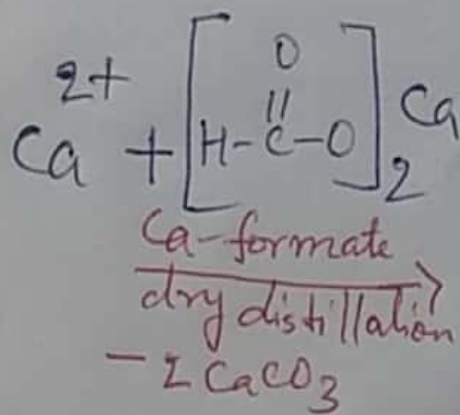 O
||
Ca²⁺ + [H-C-O]₂ Ca
Ca-formate
dry distillation
- 2 CaCO₃